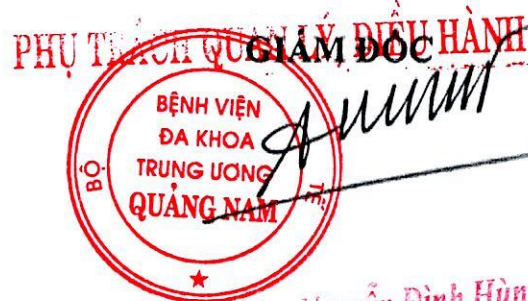 PHỤ TRÁCH QUẢN LÝ, ĐIỀU HÀNH
GIÁM ĐỐC
BỆNH VIỆN
ĐA KHOA
TRUNG ƯƠNG
QUẢNG NAM
BỘ
TẾ
Đình Hùn